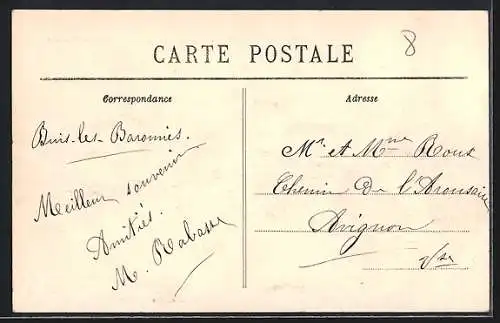 8
CARTE POSTALE
Correspondance
Buis-les-Baronnies.
Meilleur souvenir
Amitiés.
M. Rabasse
Adresse
Mr et Mme Roux
Chemin de l'Arousaire
Avignon
Vse